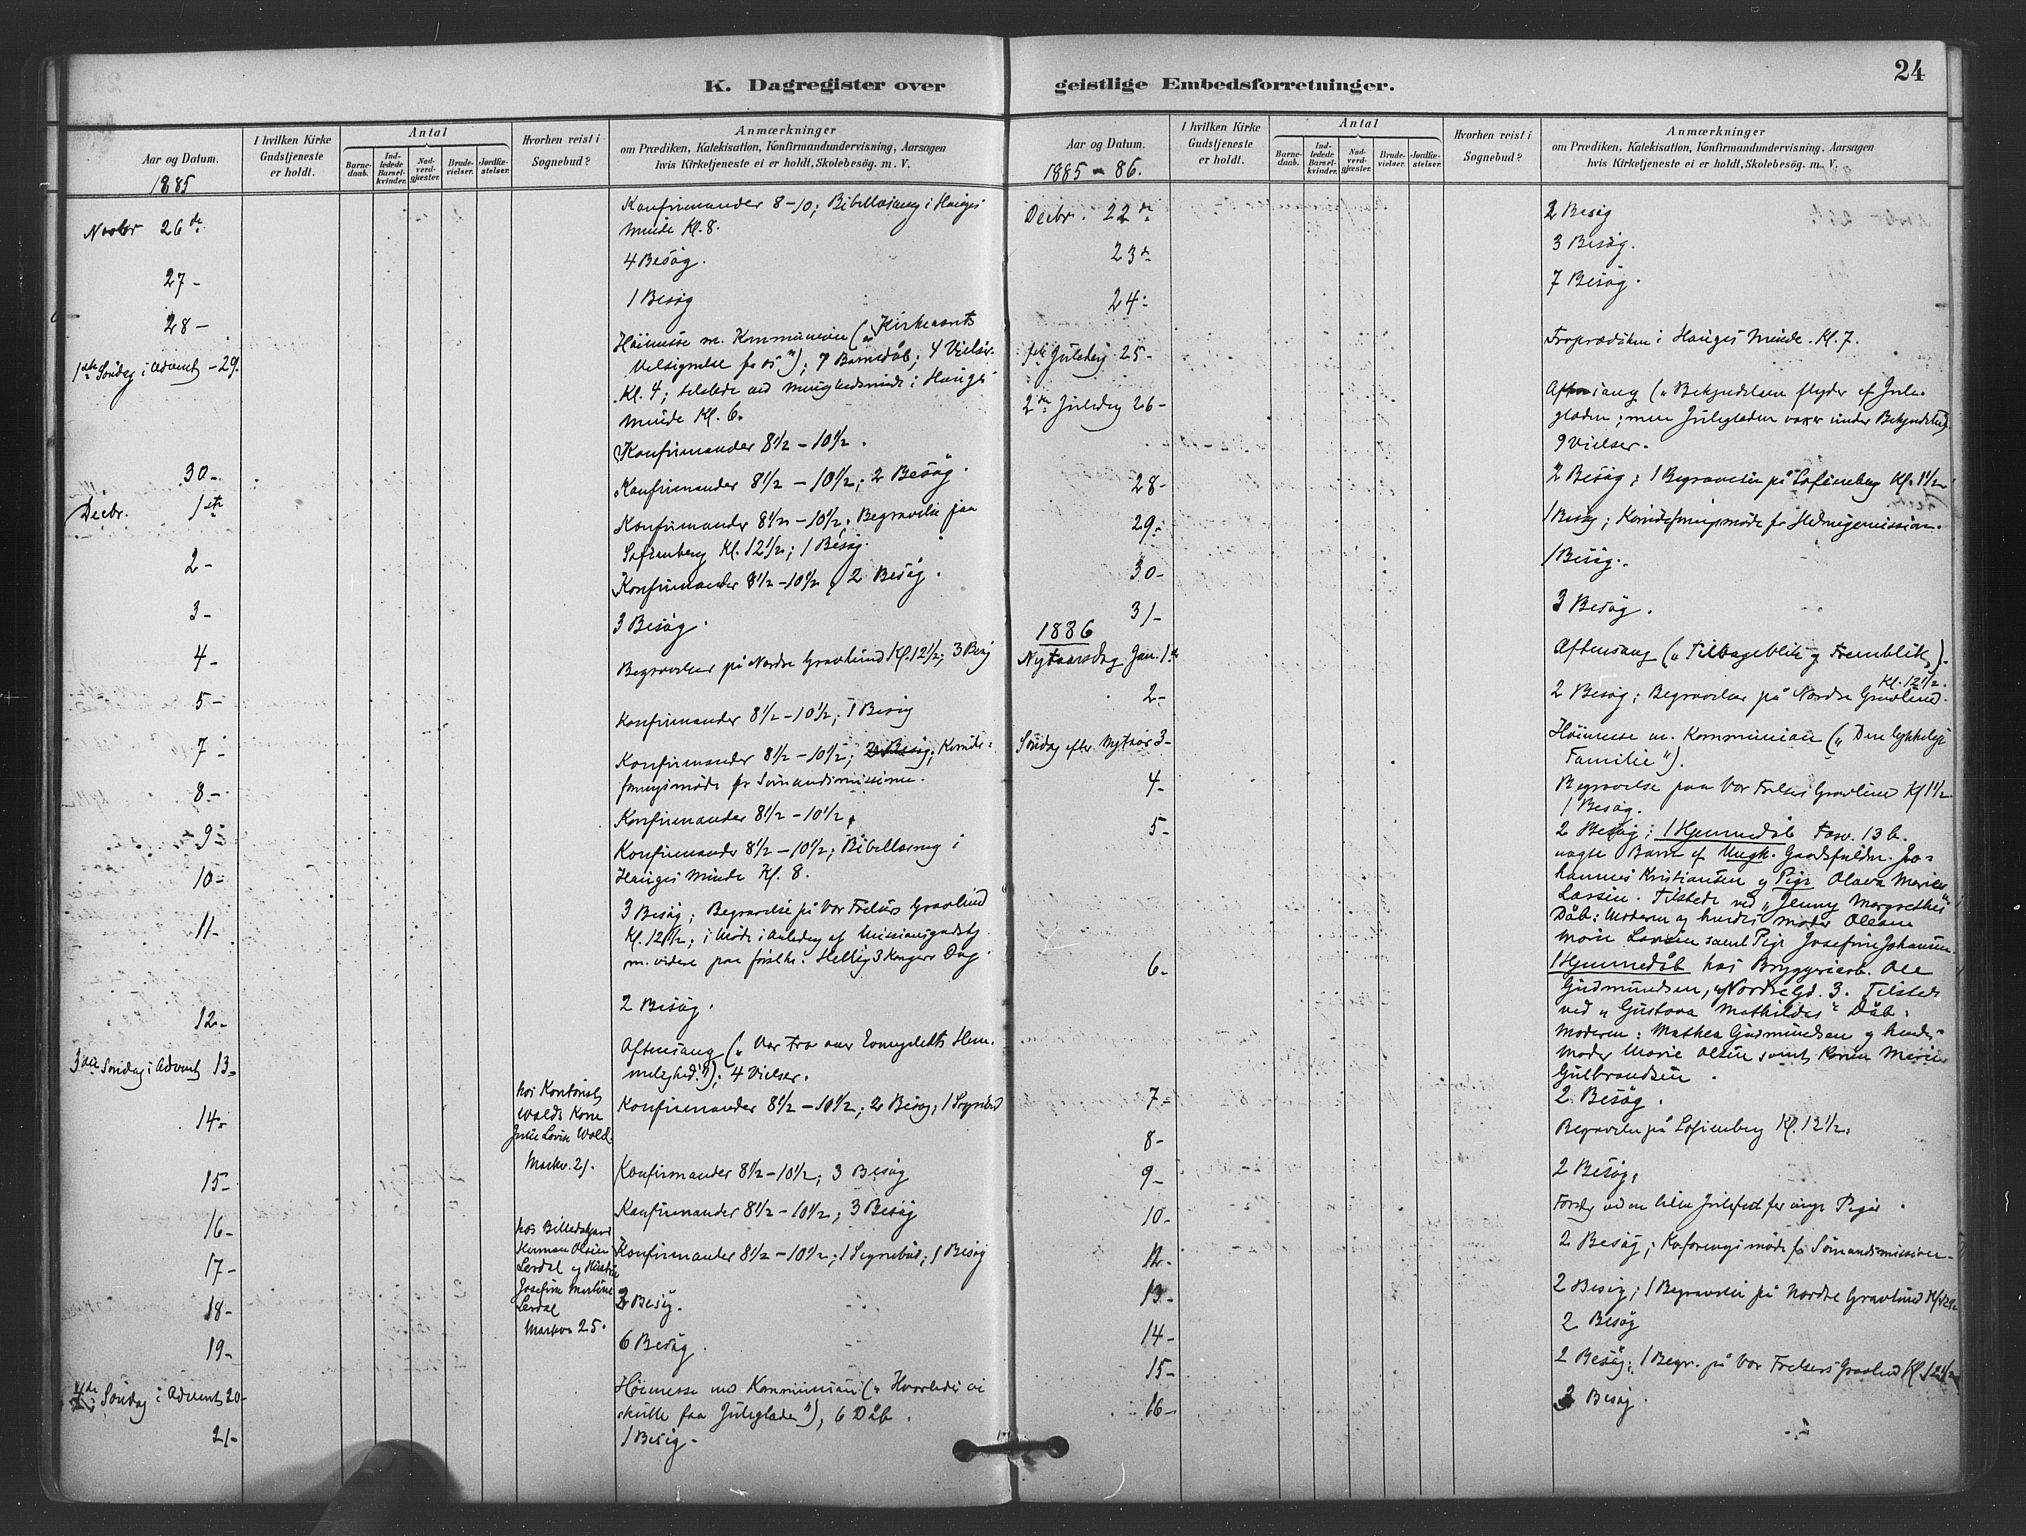 24
K. Dagregister over geistlige Embedsforretninger.
Aar og Datum.
1885
I hvilken Kirke Gudstjeneste er holdt.
Antal
Barnedaab.
Indledede Barselkvinder.
Nadverdgjæster.
Brudevielser.
Jordfæstelser.
Hvorhen reist i Sognebud?
Anmærkninger
om Prædiken, Katekisation, Konfirmandundervisning, Aarsagen
hvis Kirketjeneste ei er holdt, Skolebesøg. m. V.
Novbr 26de
Konfirmander 8-10; Bibellæsning i Hauges
Minde Kl. 8.
27 -
4 Besøg.
28 -
1 Besøg
1ste Søndag i Advent - 29.
Høimesse m. Kommunion („Kirkeaarets
Velsignelse for os"); 7 Barnedåb; 4 Vielser
Kl. 4; talede ved i Hauges
Minde Kl. 6.
30 -
Konfirmander 8½ - 10½.
Decbr. 1ste
Konfirmander 8½ - 10½; 2 Besøg.
2 -
Konfirmander 8½ - 10½; Begravelse paa
Sofienberg Kl. 12½; 1 Besøg.
3 -
Konfirmander 8½ - 10½, 2 Besøg.
4 -
3 Besøg.
5 -
Begravelser på Nordre Gravlund Kl. 12½; 3 Besøg
7 -
Konfirmander 8½ - 10½; 1 Besøg
8 -
Konfirmander 8½ - 10½; Komite-
møde for Sømandsmissionen.
9 -
Konfirmander 8½ - 10½.
10 -
Konfirmander 8½ - 10½; Bibellæsning i
Hauges Minde Kl. 8.
11 -
3 Besøg; Begravelse på Vor Frelsers Gravlund
Kl. 12½; i Møde i Anledng af
m. videre paa Hellig 3 Kongers Dag.
12 -
2 Besøg.
3die Søndag i Advent 13 -
Aftensang („Vor Tro over Evangeliets Hem-
melighed."); 4 Vielser.
14 -
hos Kontorist
Wolds Kone
Julie Wold.
Markv. 21.
Konfirmander 8½ - 10½; 2 Besøg; 1 Sognebud
15 -
Konfirmander 8½ - 10½; 3 Besøg
16 -
Konfirmander 8½ - 10½; 3 Besøg
17 -
hos
Herman Olsen
Lerdal og Hustru
Josefine Martine
Lerdal
Markv. 25.
Konfirmander 8½ - 10½; 1 Sognebud; 1 Besøg
18 -
2 Besøg.
19 -
6 Besøg.
4de Søndag i Advent 20 -
Høimesse med Kommunion („Hvorledes vi
skulle faa Juleglæde"), 6 Dåb.
21 -
1 Besøg.
Aar og Datum.
1885 - 86.
I hvilken Kirke Gudstjeneste er holdt.
Antal
Barnedaab.
Indledede Barselkvinder.
Nadverdgjæster.
Brudevielser.
Jordfæstelser.
Hvorhen reist i Sognebud?
Anmærkninger
om Prædiken, Katekisation, Konfirmandundervisning, Aarsagen
hvis Kirketjeneste ei er holdt, Skolebesøg. m. V.
Decbr. 22de
2 Besøg
23de
3 Besøg.
24 -
7 Besøg.
1ste Juledag 25 -
Froprædiken i Hauges Minde. Kl. 7.
2den Juledag 26 -
Aftensang („Bekjendelsen flyder af Jule-
glæden; men Juleglæden voxer under Bekjendelsen")
9 Vielser.
28 -
2 Besøg; 1 Begravelse på Sofienberg Kl. 1½
29 -
1 Besøg; Komitemøde for
30 -
1 Besøg.
31 -
3 Besøg.
1886
Nytaarsdag Jan. 1ste
Aftensang („Tilbageblik og Fremblik").
2 -
Kl. 12½.
2 Besøg; Begravelser på Nordre Gravlund.
Søndag efter Nytaar 3 -
Høimesse m. Kommunion („Den lykkelige
Familie").
4 -
Begravelse paa Vor Frelsers Gravlund Kl 1½
1 Besøg.
5 -
2 Besøg; 1 Hjemmedåb 13 b.
uægte Barn af Ungk. Gaardsfuldm. Jo-
hannes Kristiansen og Pige Olava Marie
Larsen. Tilstede ved „Jenny Margrethes"
Dåb: Moderen og hendes Moder Oleane
Marie Larsen samt Pige Josefine Johansen.
6 -
1 Hjemmedåb hos Bryggeriarb. Ole
Gudmundsen, Nordregd. 3. Tilstede
ved „Gustava Mathildes" Dåb:
Moderen: Mathea Gudmundsen og hendes
Moder Marie Olsen samt Karen Marie
Gulbrandsen.
7 -
2 Besøg.
8 -
Begravelse på Sofienberg Kl. 12½.
9 -
2 Besøg.
10 -
Foredrag ved en liten Julefest for unge Piger.
12 -
2 Besøg; møde for Sømandsmissionen -
13 -
2 Besøg; 1 Begravelse på Nordre Gravlund Kl. 12½
14 -
2 Besøg
15 -
2 Besøg; 1 Begr. på Vor Frelsers Gravlund Kl. 12½
16 -
3 Besøg.